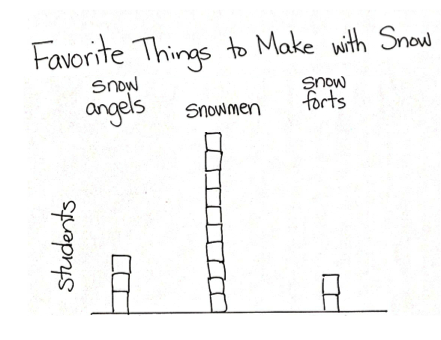 Favorite Things to Make with Snow
snow
angels
snowmen
snow
forts
students